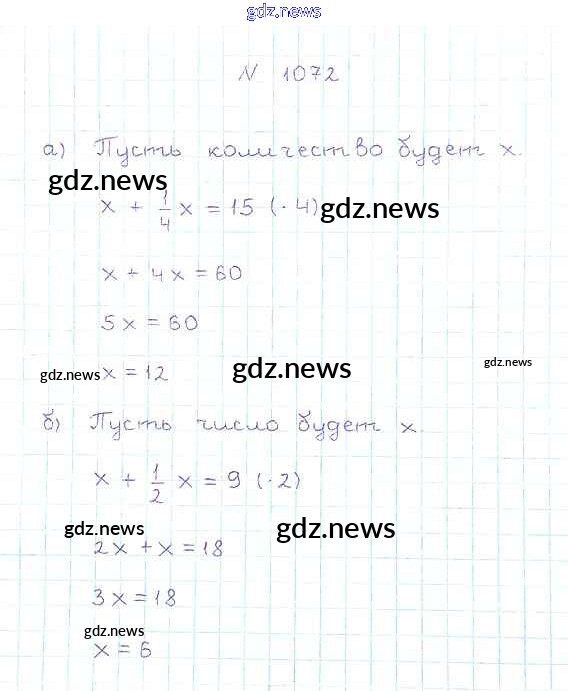 gdz.news
N 1072
а) Пусть количество будет x.
gdz.news
x + 1/4 x = 15 (· 4) gdz.news
x + 4x = 60
5x = 60
gdz.news x = 12 gdz.news gdz.news
б) Пусть число будет x.
x + 1/2 x = 9 (·2)
gdz.news gdz.news
2x + x = 18
3x = 18
gdz.news
x = 6